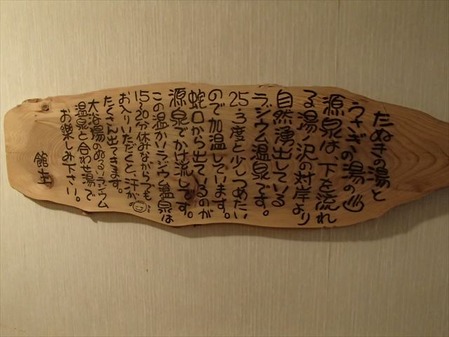 たぬきの湯と
うさぎの湯の♨
源泉は、下を流れ
る湯ノ沢の対岸より
自然湧出している
ラジウム温泉です。
25.3度と少しつめたい
ので加温しています。
蛇口から出ているのが
源泉でかけ流しです。
この温かいラジウム温泉は
15~20分休みながらでも、
お入りいただくと汗が
たくさん出てきます。
大浴場のぬるいラジウム
温泉と合わせ湯で
お楽しみ下さい。
館主